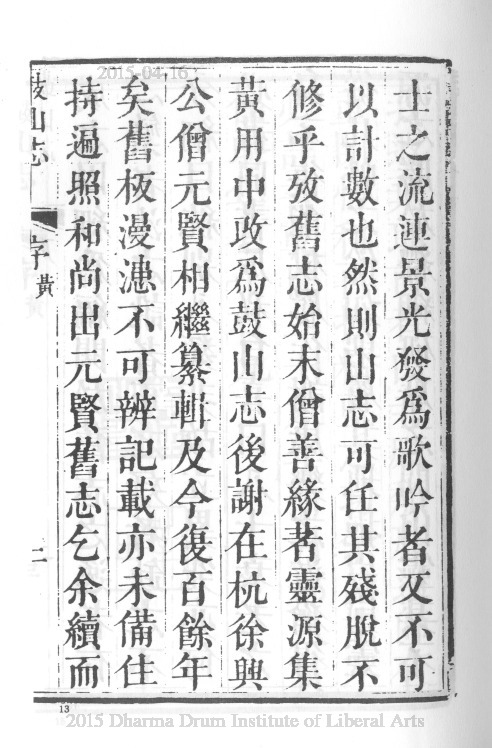 2015-04-16
士之流連景光發爲歌吟者又不可
以計數也然則山志可任其殘脫不
修乎攷舊志始末僧善緣著靈源集
黃用中改爲鼓山志後謝在杭徐興
公僧元賢相繼纂輯及今復百餘年
矣舊板漫漶不可辨記載亦未備住
持遍照和尚出元賢舊志乞余續而
鼓山志 序黃 二
13
2015 Dharma Drum Institute of Liberal Arts